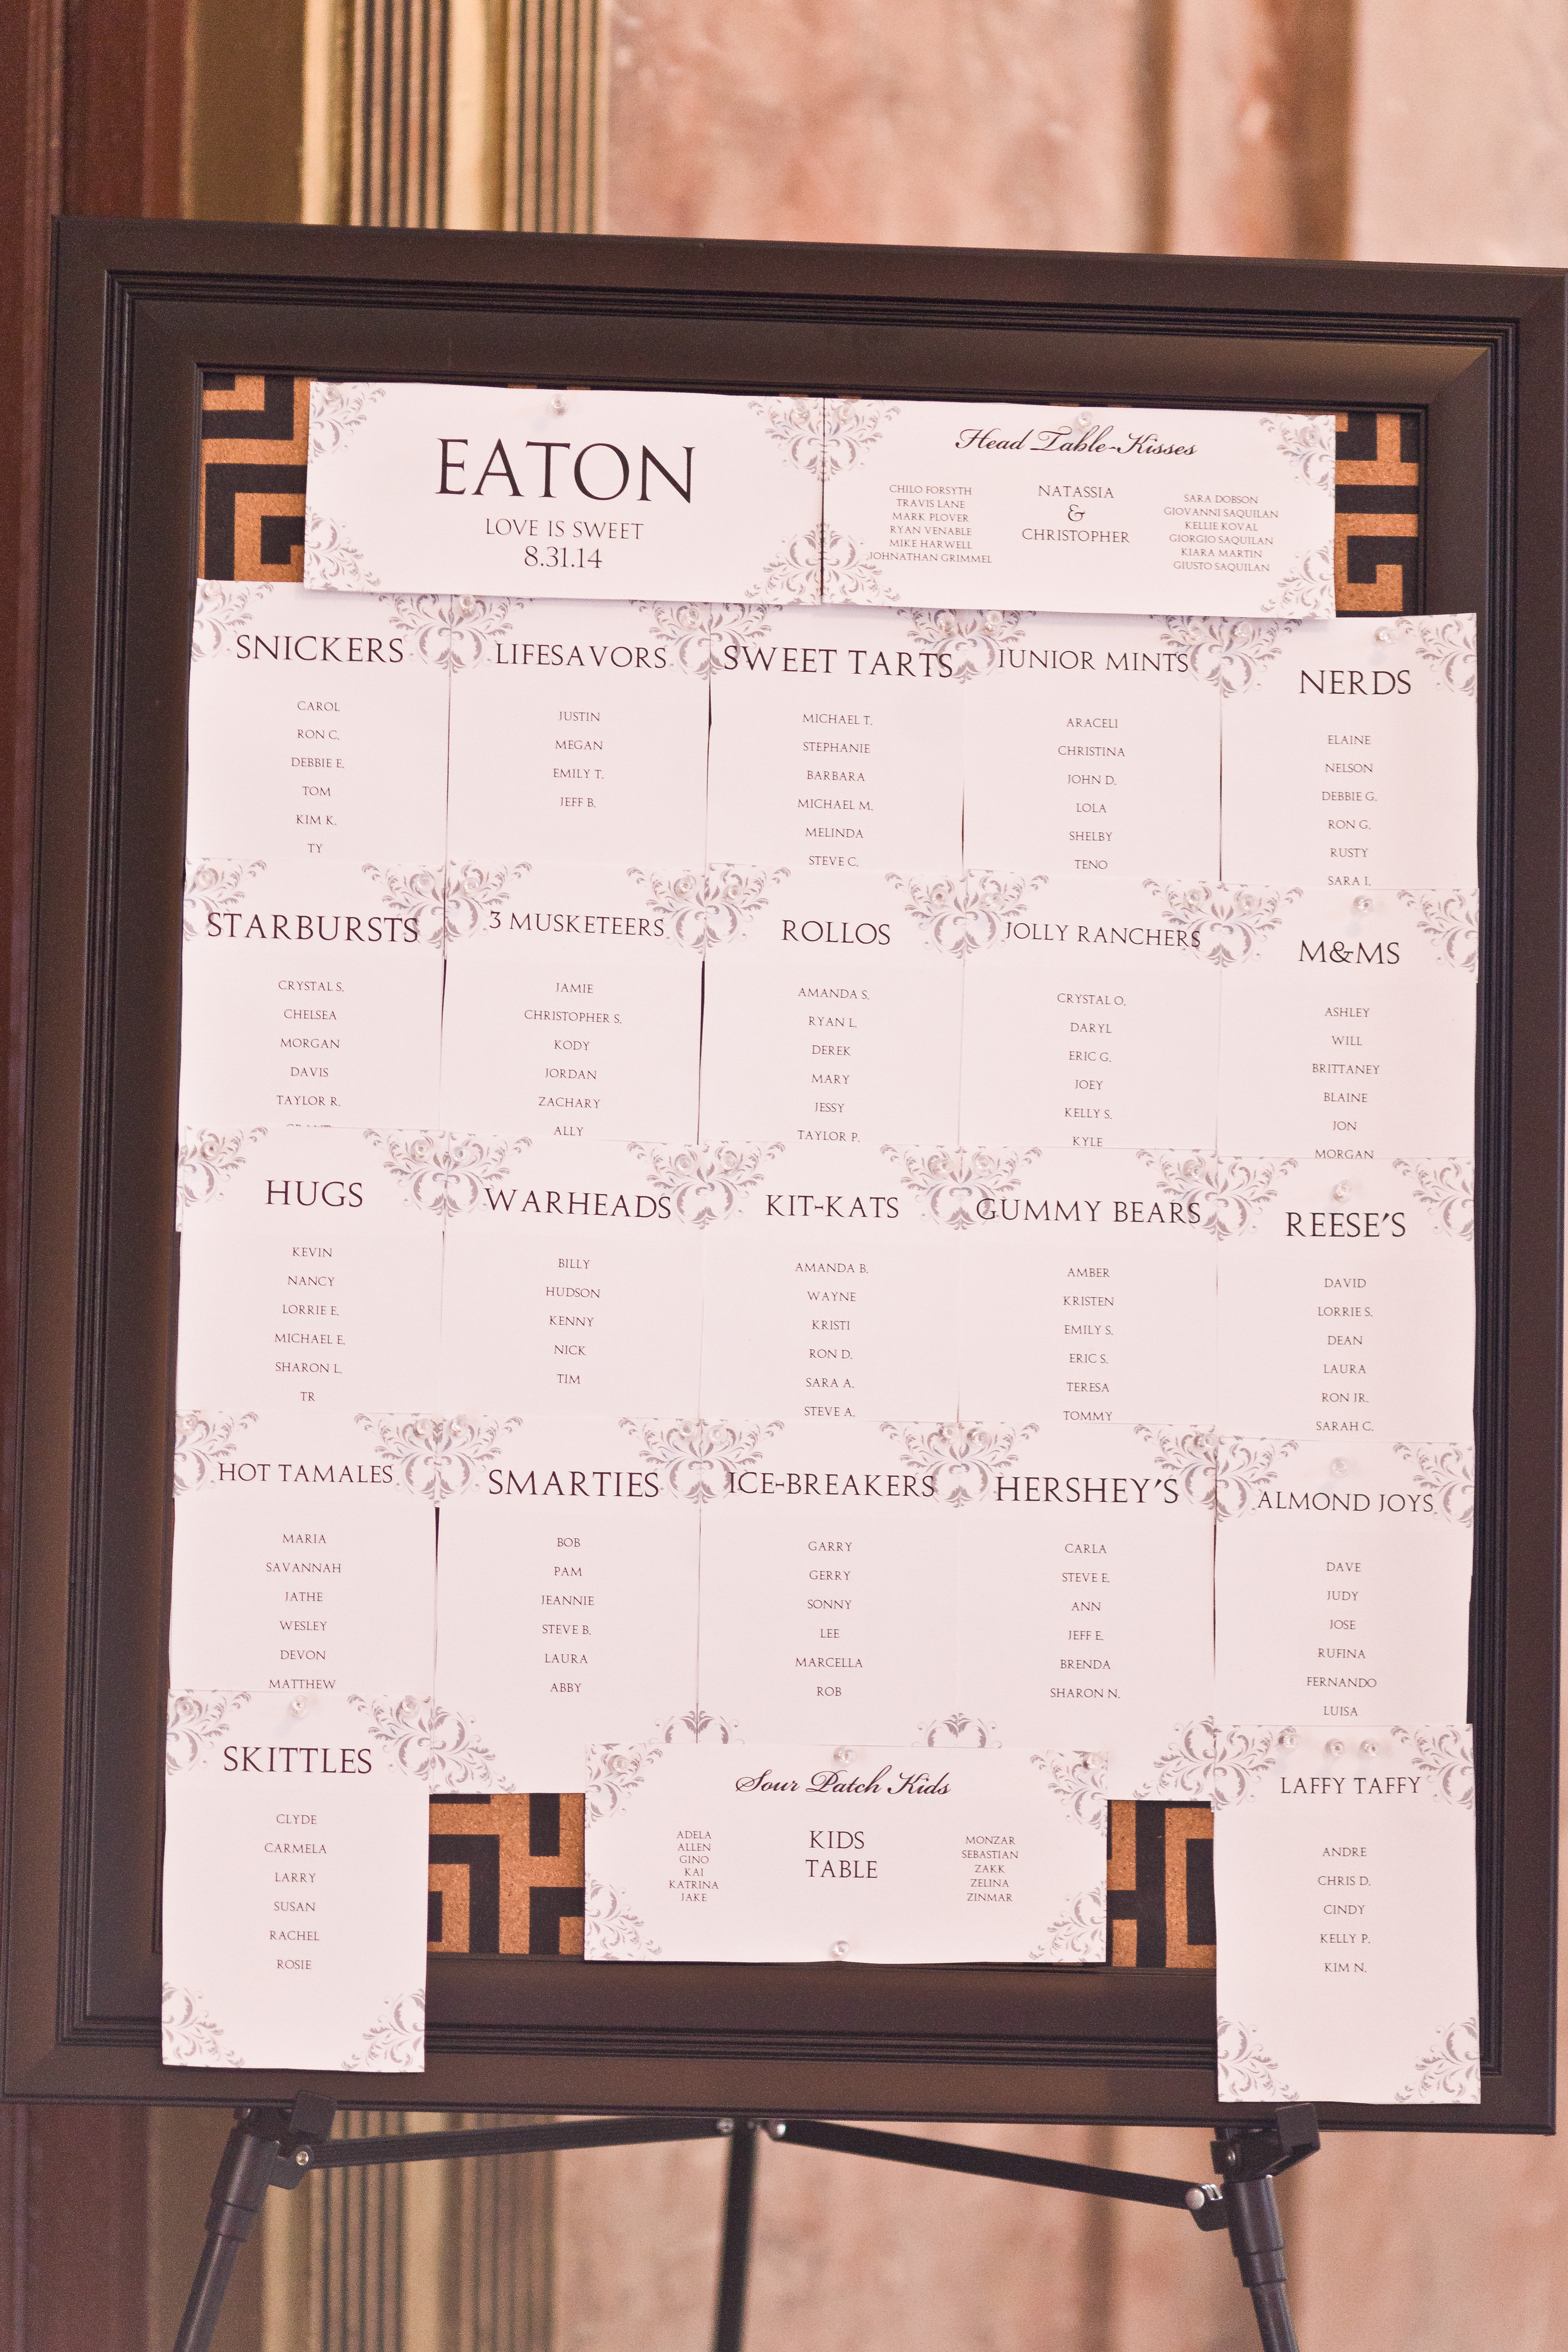 EATON
LOVE IS SWEET
8.31.14
Head Table-Kisses
CHILO FORSYTH
TRAVIS LANE
MARK PLOVER
RYAN VENABLE
MIKE HARWELL
JOHNATHAN GRIMMEL
NATASSIA
&
CHRISTOPHER
SARA DOBSON
GIOVANNI SAQUILAN
KELLIE KOVAL
GIORGIO SAQUILAN
KIARA MARTIN
GIUSTO SAQUILAN
SNICKERS
CAROL
RON C.
DEBBIE E.
TOM
KIM K.
TY
LIFESAVORS
JUSTIN
MEGAN
EMILY T.
JEFF B.
SWEET TARTS
MICHAEL T.
STEPHANIE
BARBARA
MICHAEL M.
MELINDA
STEVE C.
JUNIOR MINTS
ARACELI
CHRISTINA
JOHN D.
LOLA
SHELBY
TENO
NERDS
ELAINE
NELSON
DEBBIE G.
RON G.
RUSTY
SARA I.
STARBURSTS
CRYSTAL S.
CHELSEA
MORGAN
DAVIS
TAYLOR R.
3 MUSKETEERS
JAMIE
CHRISTOPHER S.
KODY
JORDAN
ZACHARY
ALLY
ROLLOS
AMANDA S.
RYAN L.
DEREK
MARY
JESSY
TAYLOR P.
JOLLY RANCHERS
CRYSTAL O.
DARYL
ERIC G.
JOEY
KELLY S.
KYLE
M&MS
ASHLEY
WILL
BRITTANEY
BLAINE
JON
MORGAN
HUGS
KEVIN
NANCY
LORRIE E.
MICHAEL E.
SHARON L.
TR
WARHEADS
BILLY
HUDSON
KENNY
NICK
TIM
KIT-KATS
AMANDA B.
WAYNE
KRISTI
RON D.
SARA A.
STEVE A.
GUMMY BEARS
AMBER
KRISTEN
EMILY S.
ERIC S.
TERESA
TOMMY
REESE'S
DAVID
LORRIE S.
DEAN
LAURA
RON JR.
SARAH C.
HOT TAMALES
MARIA
SAVANNAH
JATHE
WESLEY
DEVON
MATTHEW
SMARTIES
BOB
PAM
JEANNIE
STEVE B.
LAURA
ABBY
ICE-BREAKERS
GARRY
GERRY
SONNY
LEE
MARCELLA
ROB
HERSHEY'S
CARLA
STEVE E.
ANN
JEFF E.
BRENDA
SHARON N.
ALMOND JOYS
DAVE
JUDY
JOSE
RUFINA
FERNANDO
LUISA
SKITTLES
CLYDE
CARMELA
LARRY
SUSAN
RACHEL
ROSIE
Sour Patch Kids
ADELA
ALLEN
GINO
KAI
KATRINA
JAKE
KIDS
TABLE
MONZAR
SEBASTIAN
ZAKK
ZELINA
ZINMAR
LAFFY TAFFY
ANDRE
CHRIS D.
CINDY
KELLY P.
KIM N.